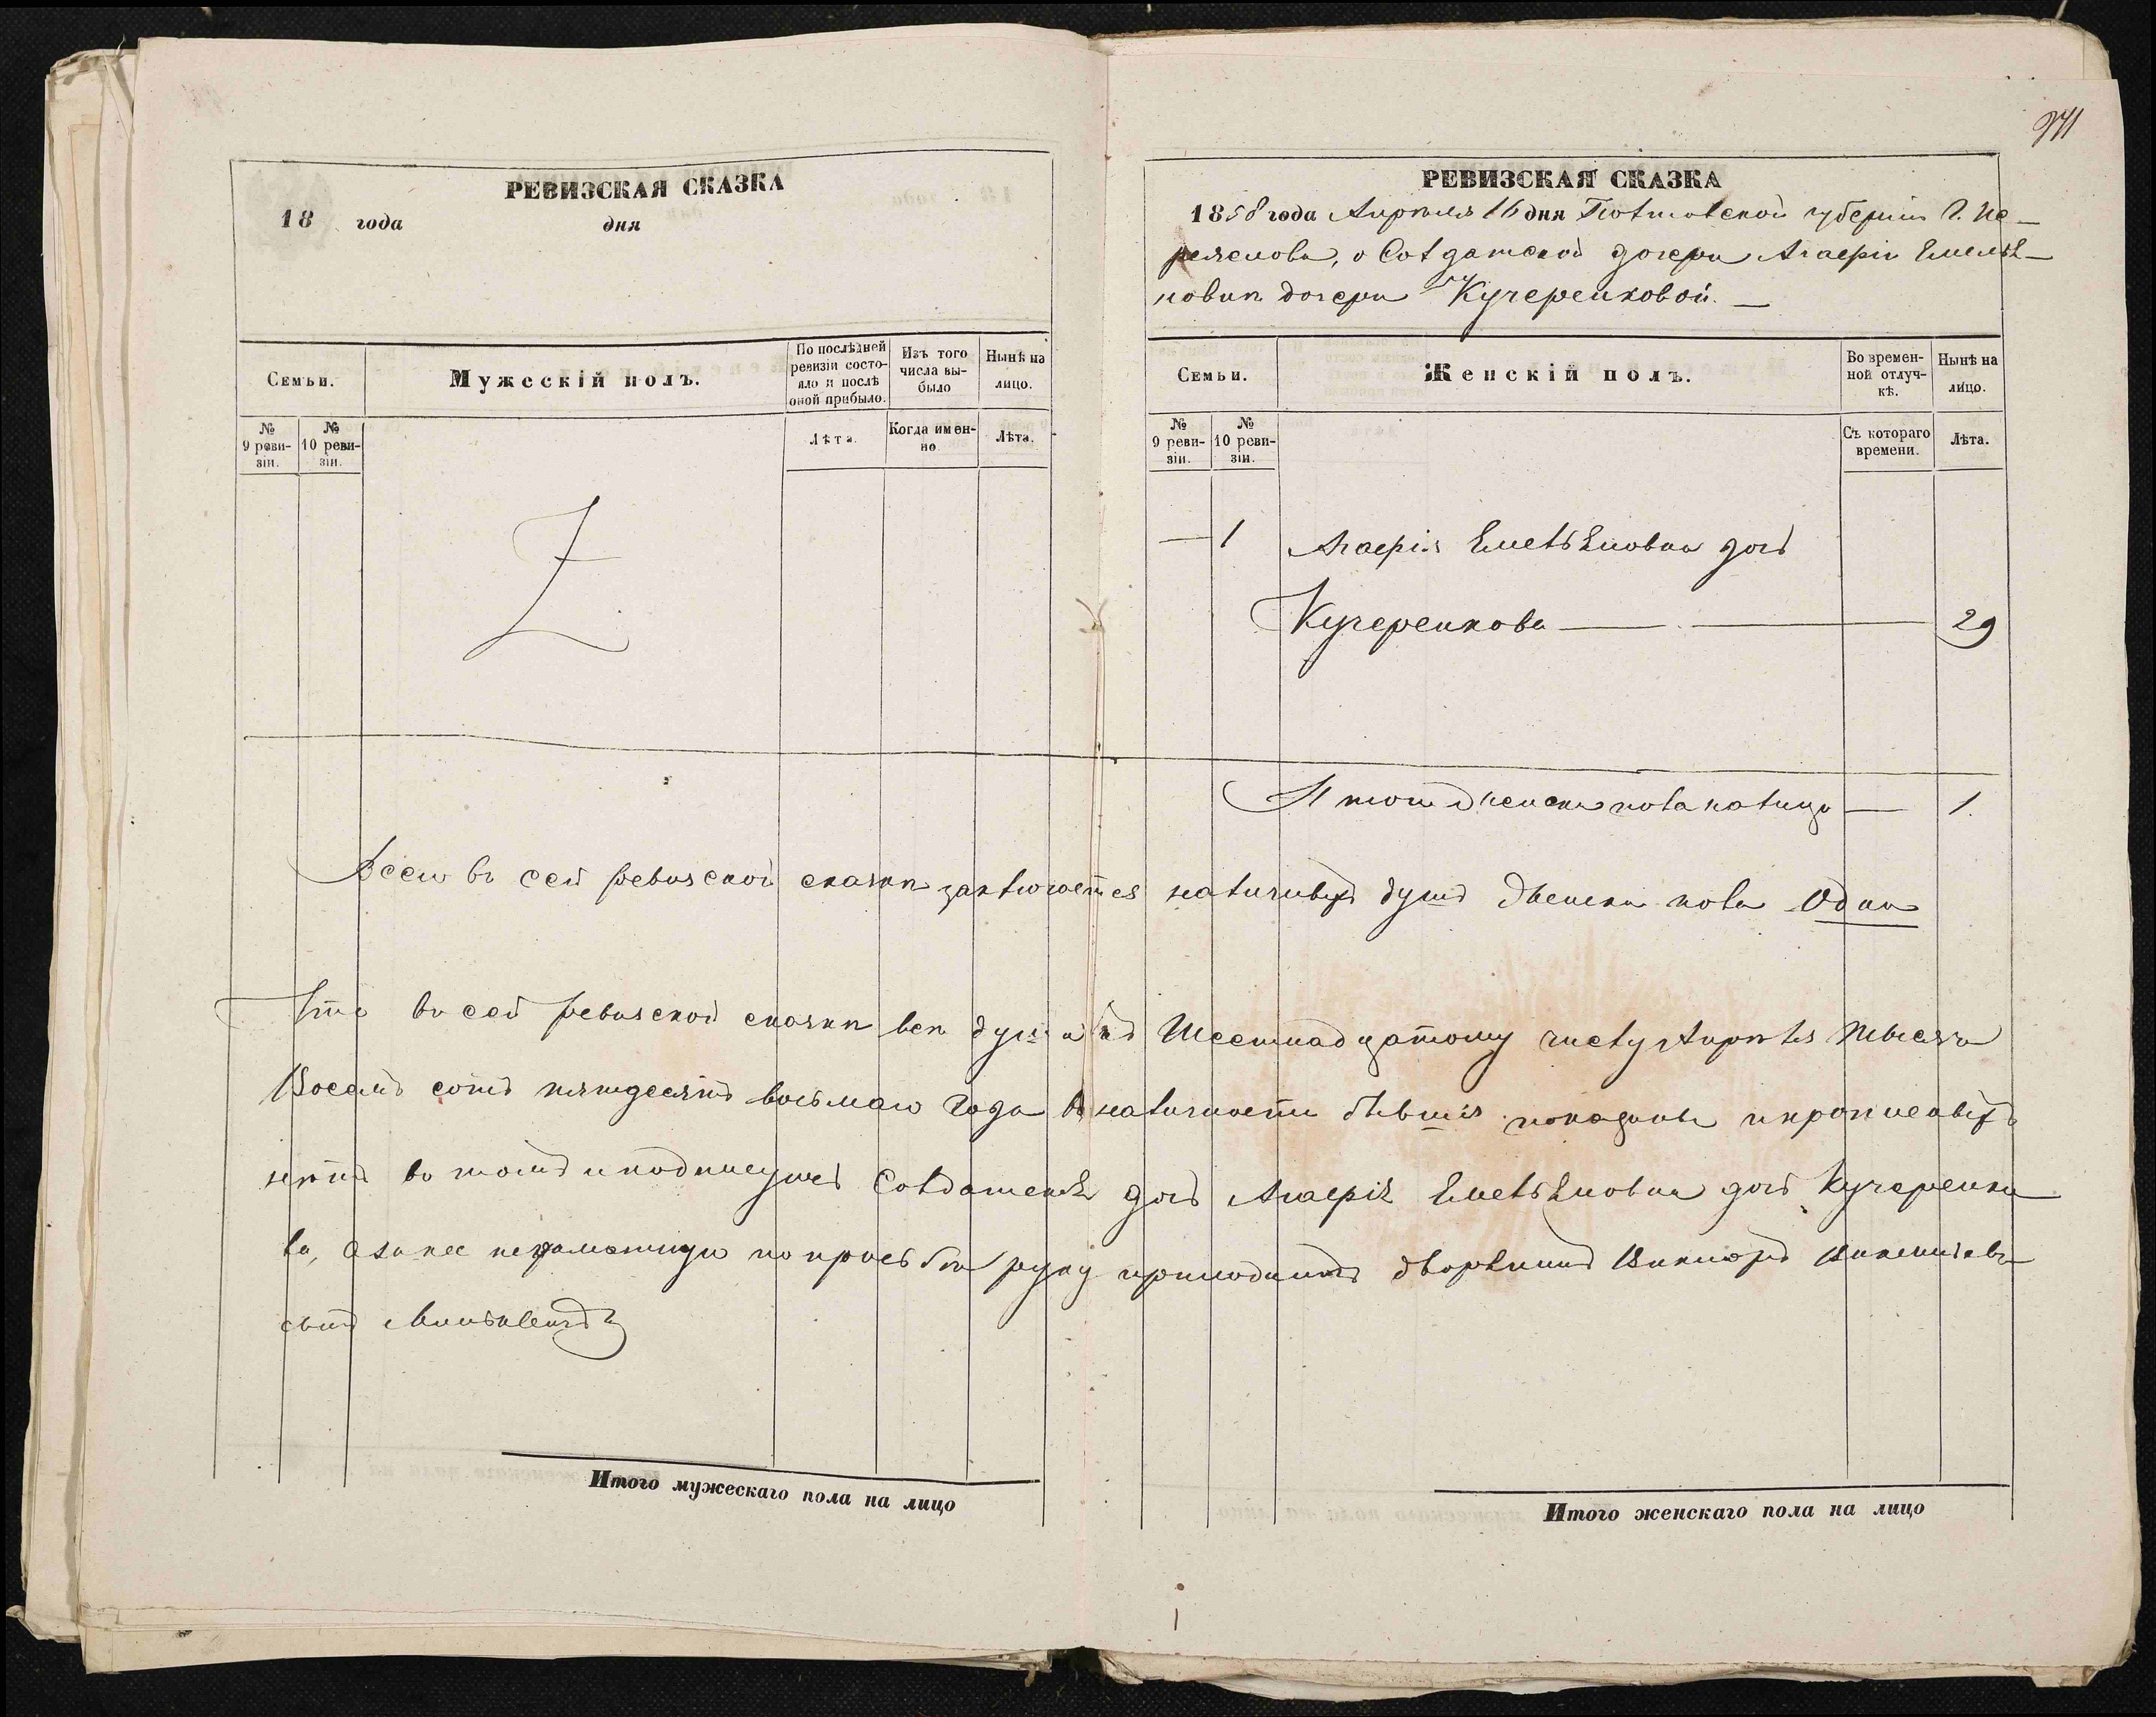 РЕВИЗСКАЯ СКАЗКА
18 года дня
Семьи.
Мужескій полъ.
По послѣдней ревизіи состояло и послѣ оной прибыло.
Изъ того числа выбыло
Нынѣ на лицо.
№ 9 ревизіи.
№ 10 ревизіи.
Лѣта.
Когда именно.
Лѣта.
971
РЕВИЗСКАЯ СКАЗКА
1858 года Апрѣля 16 дня Полтавской губерніи Г. Пе-
реяслова, о Солдатской дочери Агафіи Емелья-
новнѣ дочери Кучеренковой. —
Семьи.
Женскій полъ.
Во временной отлучкѣ.
Нынѣ на лицо.
№ 9 ревизіи.
№ 10 ревизіи.
Съ котораго времени.
Лѣта.
— 1 Агафія Емельянова дочь
Кучеренкова — 29
Итого женска пола налицо — 1.
Всего въ сей ревизской сказкѣ заключается наличныхъ душъ женска пола Одна
Что въ сей ревизской сказкѣ всѣ души къ Шестнадцатому числу Апрѣля тысяча
Восемь сотъ пятдесятъ восьмаго Года въ наличности бывшія показаны и прописныхъ
нѣтъ въ томъ и подписуюсь Солдатская дочь Агафія Емельянова дочь Кучеренко
ва, а за нее неграмотную по просьбѣ руку приложилъ дворянинъ Викторъ Викентіевъ
сынъ
Итого мужескаго пола на лицо
Итого женскаго пола на лицо